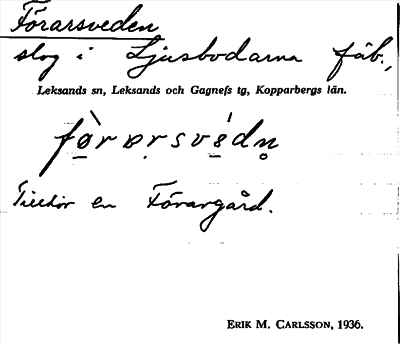 Förarsveden
slog i Ljusbodarna fäb.,
Leksands sn, Leksands och Gagnefs tg, Kopparbergs län.
fø̱̀rɒrsvé̱dn̥
Tillhör en Förargård.
ERIK M. CARLSSON, 1936.